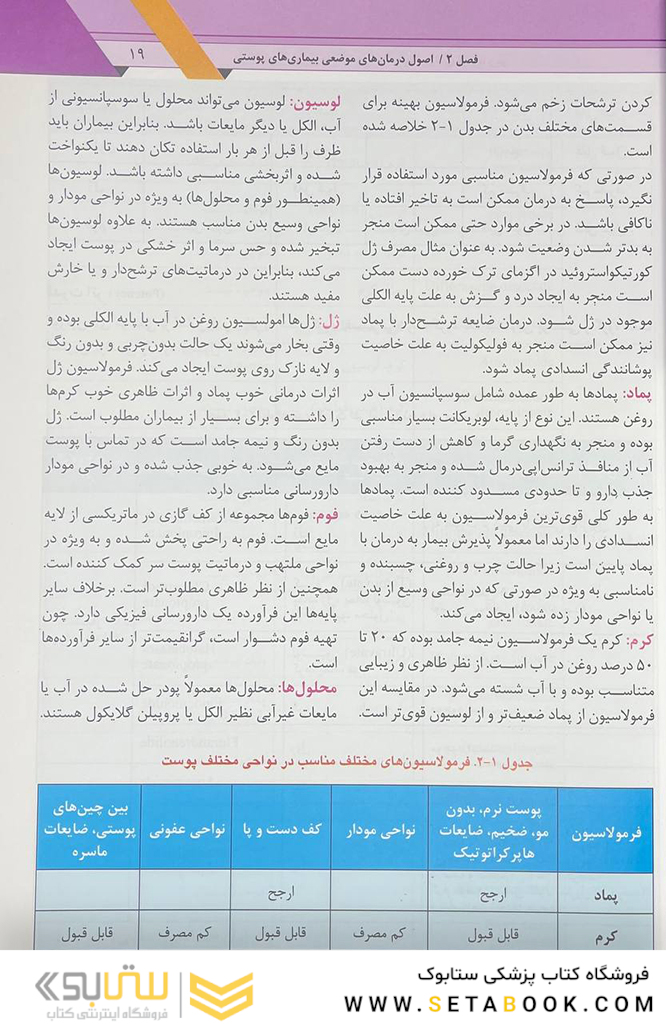 فصل ۲ / اصول درمان‌های موضعی بیماری‌های پوستی
۱۹
کردن ترشحات زخم می‌شود. فرمولاسیون بهینه برای
قسمت‌های مختلف بدن در جدول ۱-۲ خلاصه شده
است.
در صورتی که فرمولاسیون مناسبی مورد استفاده قرار
نگیرد، پاسخ به درمان ممکن است به تاخیر افتاده یا
ناکافی باشد. در برخی موارد حتی ممکن است منجر
به بدتر شدن وضعیت شود. به عنوان مثال مصرف ژل
کورتیکواستروئید در اگزمای ترک خورده دست ممکن
است منجر به ایجاد درد و گزش به علت پایه الکلی
موجود در ژل شود. درمان ضایعه ترشح‌دار با پماد
نیز ممکن است منجر به فولیکولیت به علت خاصیت
پوشانندگی انسدادی پماد شود.
پماد: پمادها به طور عمده شامل سوسپانسیون آب در
روغن هستند. این نوع از پایه، لوبریکانت بسیار مناسبی
بوده و منجر به نگهداری گرما و کاهش از دست رفتن
آب از منافذ ترانس‌اپی‌درمال شده و منجر به بهبود
جذب دارو و تا حدودی مسدود کننده است. پمادها
به طور کلی قوی‌ترین فرمولاسیون به علت خاصیت
انسدادی را دارند اما معمولاً پذیرش بیمار به درمان با
پماد پایین است زیرا حالت چرب و روغنی، چسبنده و
نامناسبی به ویژه در صورتی که در نواحی وسیع از بدن
یا نواحی مودار زده شود، ایجاد می‌کند.
کرم: کرم یک فرمولاسیون نیمه جامد بوده که ۲۰ تا
۵۰ درصد روغن در آب است. از نظر ظاهری و زیبایی
متناسب بوده و با آب شسته می‌شود. در مقایسه این
فرمولاسیون از پماد ضعیف‌تر و از لوسیون قوی‌تر است.
لوسیون: لوسیون می‌تواند محلول یا سوسپانسیونی از
آب، الکل یا دیگر مایعات باشد. بنابراین بیماران باید
ظرف را قبل از هر بار استفاده تکان دهند تا یکنواخت
شده و اثربخشی مناسبی داشته باشد. لوسیون‌ها
(همینطور فوم و محلول‌ها) به ویژه در نواحی مودار و
نواحی وسیع بدن مناسب هستند. به علاوه لوسیون‌ها
تبخیر شده و حس سرما و اثر خشکی در پوست ایجاد
می‌کند، بنابراین در درماتیت‌های ترشح‌دار و یا خارش
مفید هستند.
ژل: ژل‌ها امولسیون روغن در آب با پایه الکلی بوده و
وقتی بخار می‌شوند یک حالت بدون‌چربی و بدون رنگ
و لایه نازک روی پوست ایجاد می‌کند. فرمولاسیون ژل
اثرات درمانی خوب پماد و اثرات ظاهری خوب کرم‌ها
را داشته و برای بسیار از بیماران مطلوب است. ژل
بدون رنگ و نیمه جامد است که در تماس با پوست
مایع می‌شود. به خوبی جذب شده و در نواحی مودار
دارورسانی مناسبی دارد.
فوم: فوم‌ها مجموعه از کف گازی در ماتریکسی از لایه
مایع است. فوم به راحتی پخش شده و به ویژه در
نواحی ملتهب و درماتیت پوست سر کمک کننده است.
همچنین از نظر ظاهری مطلوب‌تر است. برخلاف سایر
پایه‌ها این فرآورده یک دارورسانی فیزیکی دارد. چون
تهیه فوم دشوار است، گرانقیمت‌تر از سایر فرآورده‌ها
است.
محلول‌ها: محلول‌ها معمولاً پودر حل شده در آب یا
مایعات غیرآبی نظیر الکل یا پروپیلن گلایکول هستند.
جدول ۱-۲. فرمولاسیون‌های مختلف مناسب در نواحی مختلف پوست
فرمولاسیون
پوست نرم، بدون
مو، ضخیم، ضایعات
هاپرکراتوتیک
نواحی مودار
کف دست و پا
نواحی عفونی
بین چین‌های
پوستی، ضایعات
ماسره
پماد ارجح ارجح
کرم قابل قبول کم مصرف قابل قبول کم مصرف قابل قبول
فروشگاه کتاب پزشکی ستابوک
WWW.SETABOOK.COM
ستابوک
فروشگاه اینترنتی کتاب